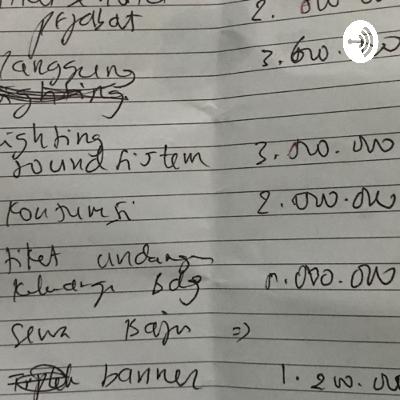 pejabat 2.
Panggung 3.600.000
Lighting
sound sistem 3.000.000
Konsumsi 2.000.000
tiket undangan
keluarga bdg .000.000
sewa Baju =>
banner 1.200.000